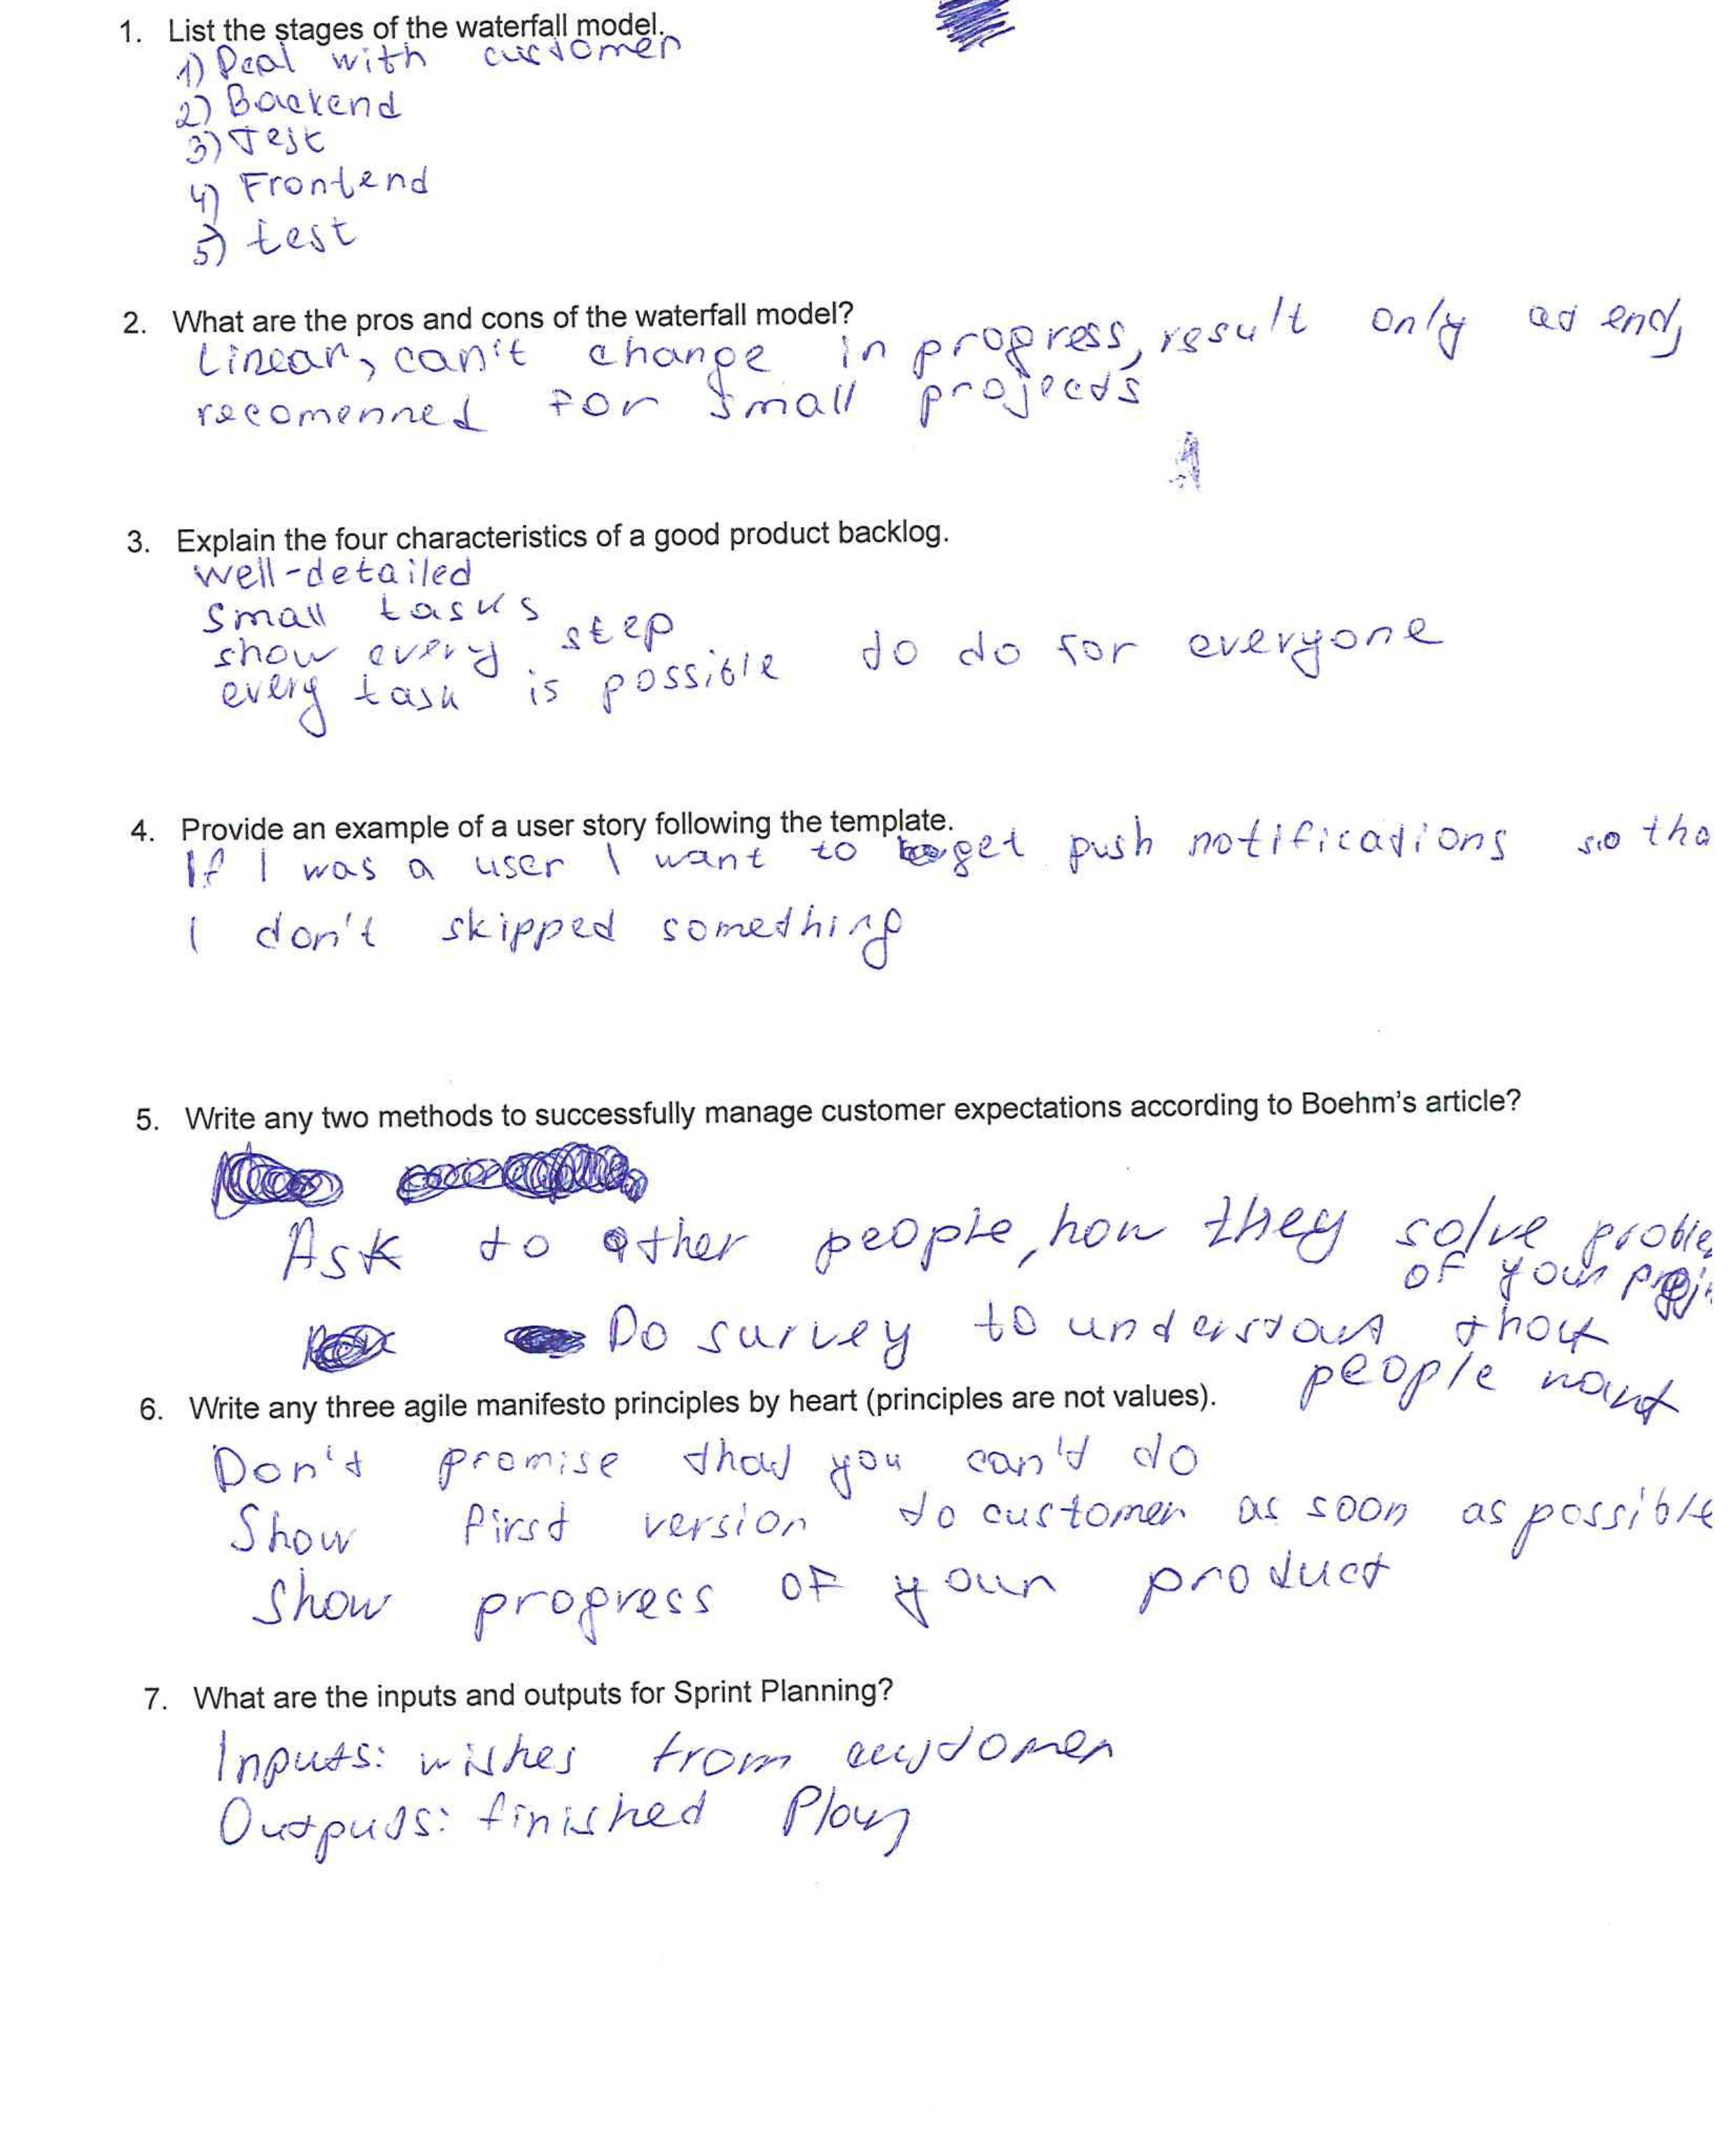 1. List the stages of the waterfall model.
1) Deal with customer
2) Backend
3) Test
4) Frontend
5) test
2. What are the pros and cons of the waterfall model?
Linear, can't change in progress, result only at end,
recomenned for small projects
3. Explain the four characteristics of a good product backlog.
well-detailed
small tasks
show every step
every task is possible to do for everyone
4. Provide an example of a user story following the template.
If I was a user I want to get push notifications so tha
I don't skipped something
5. Write any two methods to successfully manage customer expectations according to Boehm's article?
Ask to other people, how they solve proble
of your
Do survey to understant
people want
6. Write any three agile manifesto principles by heart (principles are not values).
Don't promise that you can't do
Show first version to customer as soon as possible
Show progress of your product
7. What are the inputs and outputs for Sprint Planning?
Inputs: wishes from customer
Outputs: finished Plan